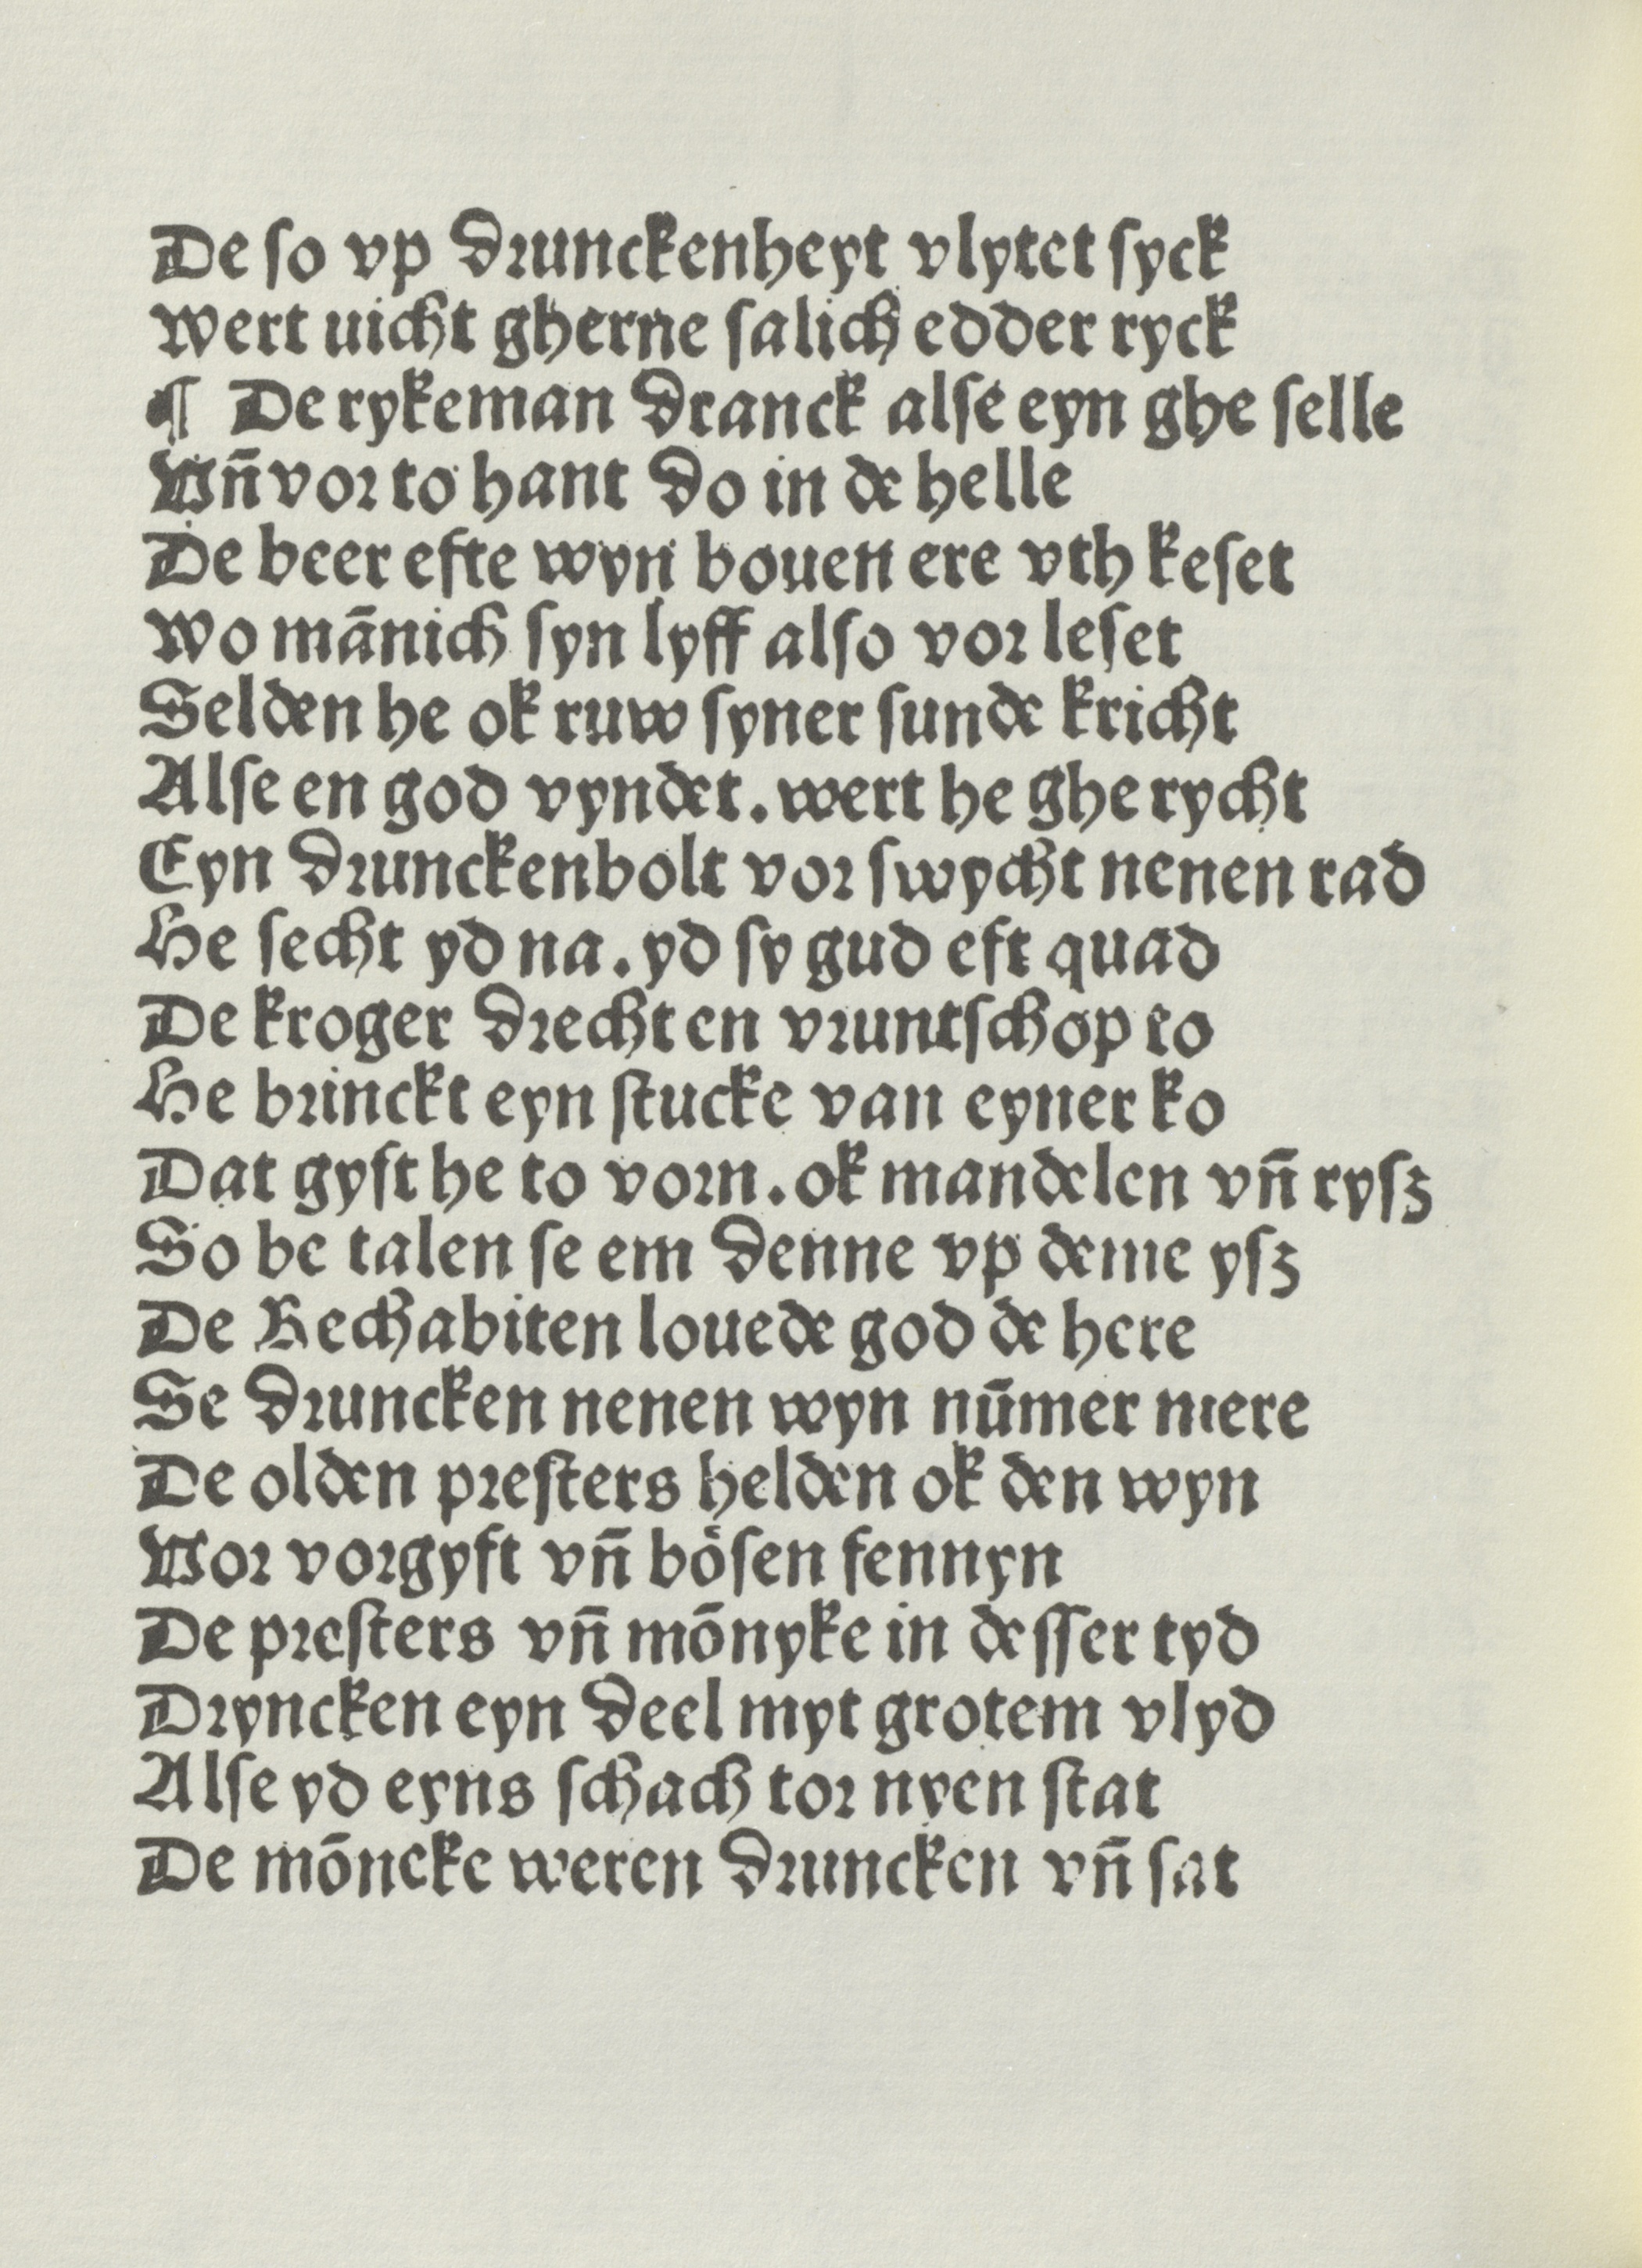 De ſo vp drunckenheyt vlytet ſyck
wert uicht gherne ſalich edder ryck
¶ De rykeman dranck alſe eyn ghe ſelle
Vn̄ vor to hant do in de helle
De beer efte wyn bouen ere vth keſet
wo mānich ſyn lyff alſo vor leſet
Selden he ok ruw ſyner ſunde kricht
Alſe en god vyndet. wert he ghe rycht
Eyn drunckenbolt vor ſwycht nenen rad
He ſecht yd na. yd ſy gud eft quad
De kroger drecht en vruntſchop to
He brinckt eyn ſtucke van eyner ko
Dat gyft he to vorn. ok mandelen vn̄ ryſz
So be talen ſe em denne vp deme yſz
De Rechabiten louede god de here
Se druncken nenen wyn nūmer mere
De olden preſters helden ok den wyn
Vor vorgyft vn̄ böſen fennyn
De preſters vn̄ mōnyke in deſſer tyd
Dryncken eyn deel myt grotem vlyd
Alſe yd eyns ſchach tor nyen ſtat
De mōneke weren druncken vn̄ ſat